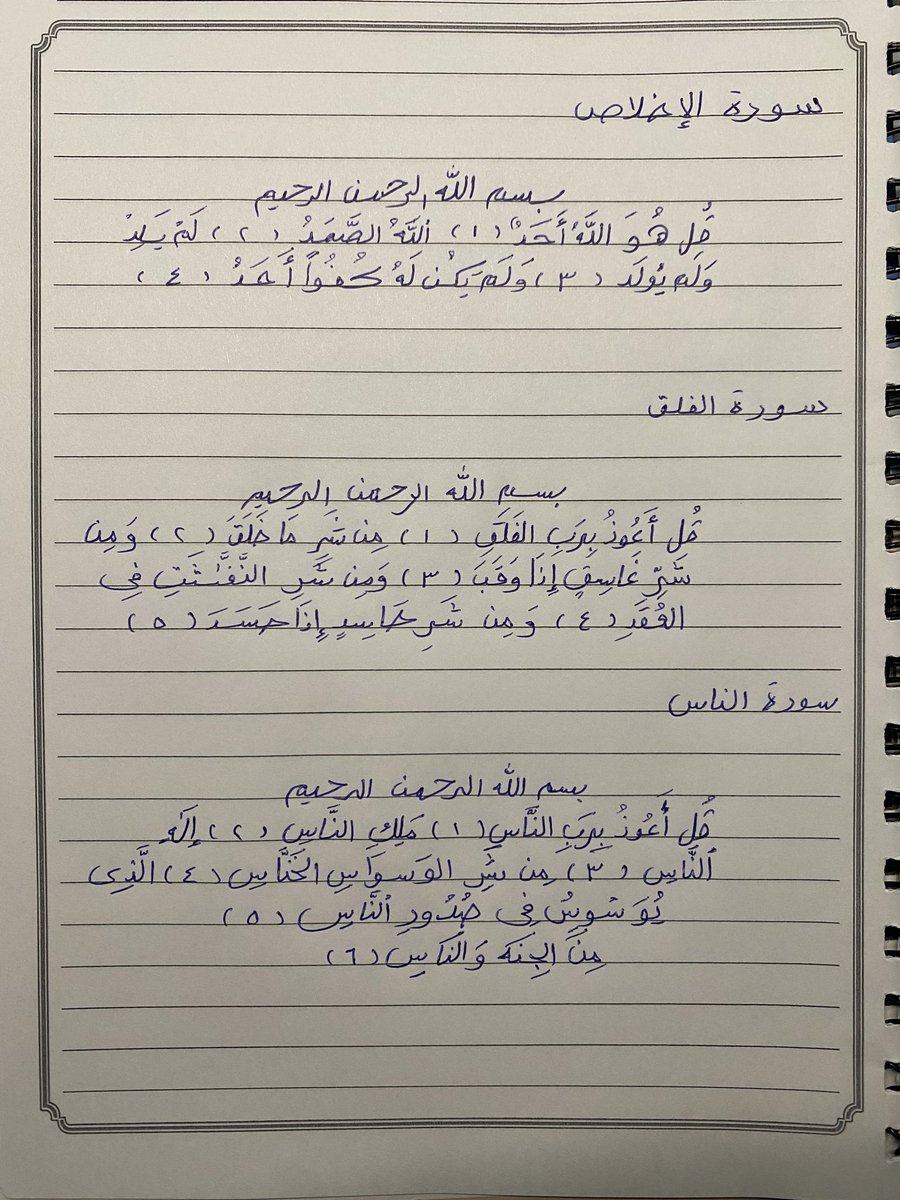 سورة الإخلاص
بسم الله الرحمن الرحيم
قُل هُوَ اللَّهُ أَحَدٌ (١) اللَّهُ الصَّمَدُ (٢) لَمْ يَلِدْ
وَلَم يُولَد (٣) وَلَم يَكُن لَهُ كُفُوًا أَحَدٌ (٤)
سورة الفلق
بسم الله الرحمن الرحيم
قُل أَعُوذُ بِرَبِ الفَلَقِ (١) مِن شَرِ مَا خَلَقَ (٢) وَمِن
شَرِّ غَاسِقٍ إِذَا وَقَبَ (٣) وَمِن شَرِ النَّفَّـٰثَـٰتِ فِي
العُقَدِ (٤) وَمِن شَرِ حَاسِدٍ إِذَا حَسَدَ (٥)
سورة الناس
بسم الله الرحمن الرحيم
قُل أَعُوذُ بِرَبِ النَّاسِ (١) مَلِكِ النَّاسِ (٢) إِلَـٰهِ
ٱلنَّاسِ (٣) مِن شَرِ الوَسوَاسِ الخَنَّاسِ (٤) الَّذِى
يُوَسْوِسُ فِي صُدُورِ النَّاسِ (٥)
مِنَ الجِنَةِ وَالنَاسِ (٦)